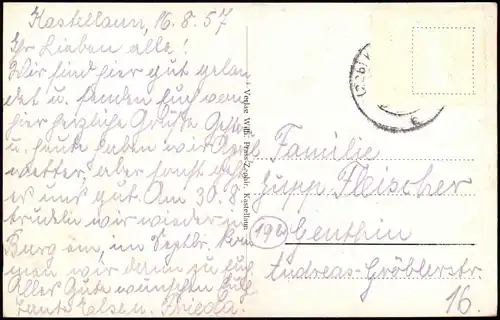 Kastellaun, 16.8.57
Ihr Lieben alle!
Wir sind hier gut gelan-
det u. senden Euch von
hier herzliche Grüße. Gestern
u. heute haben wir
wetter, aber sonst geht
es uns gut. Am 30.8.
trudeln wir wieder in
Burg ein, im Septbr. kom-
men wir dann zu Euch.
Alles Gute wünschen Euch
Tante Elsen. Frieda.
Verlag Wilh. Prass-Zephir, Kastellaun
Familie
Jupp Fleischer
(19b) Genthin
Andreas-Gröblerstr.
16.